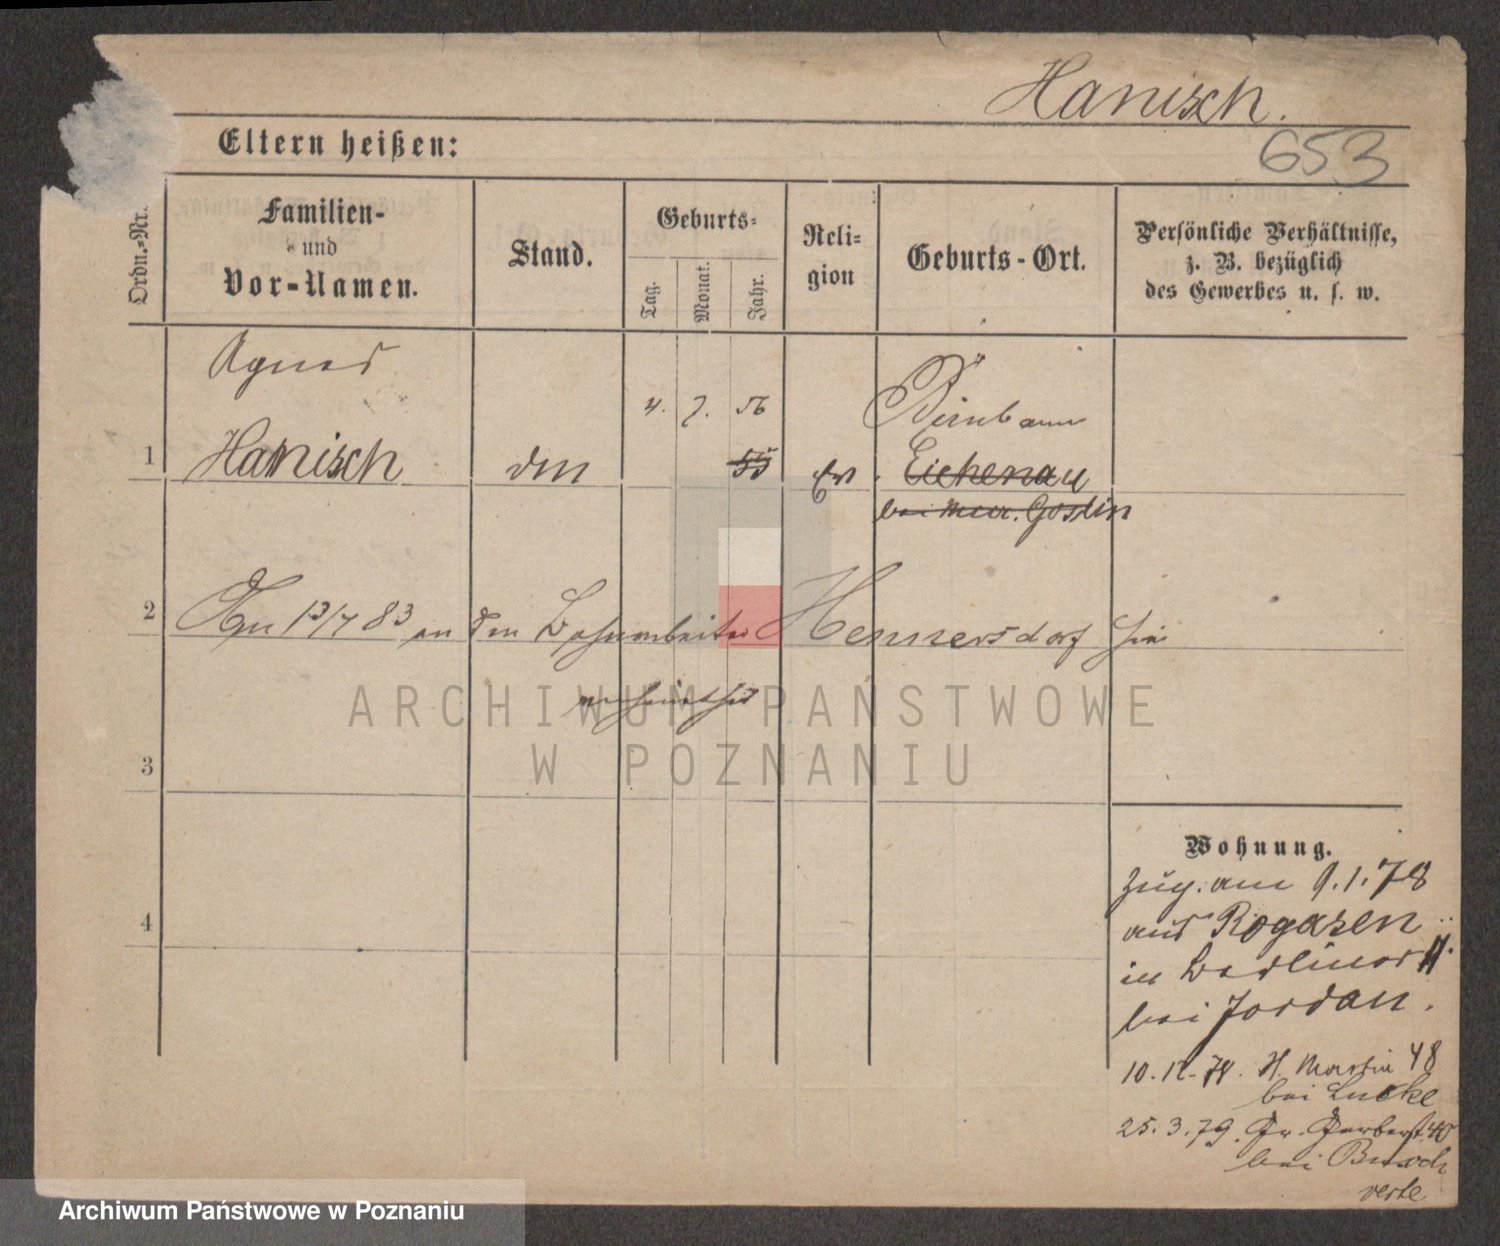 Hanisch.
653
Eltern heißen:
Ordn.-Nr.
Familien-
und
Vor-Namen.
Stand.
Geburts-
Tag.
Monat.
Jahr.
Reli-
gion
Geburts-Ort.
Persönliche Verhältnisse,
z. B. bezüglich
des Gewerbes u. s. w.
Agnes
4. 7. 56
Birnbaum
1 Hanisch 55 Ev. Eichenau
bei Mur. Goslin
2 Am 13/7 83 an den Bahnarbeiter Hennersdorf hier
verheirathet
ARCHIWUM PAŃSTWOWE
W POZNANIU
3
Wohnung.
Zug. am 9.1.78
aus Rogasen
in
bei Jordan.
4
10.12.78. St. Martin 48
bei Lucke
25.3.79. Gr. Gerberst. 40
bei Busch
verte
Archiwum Państwowe w Poznaniu